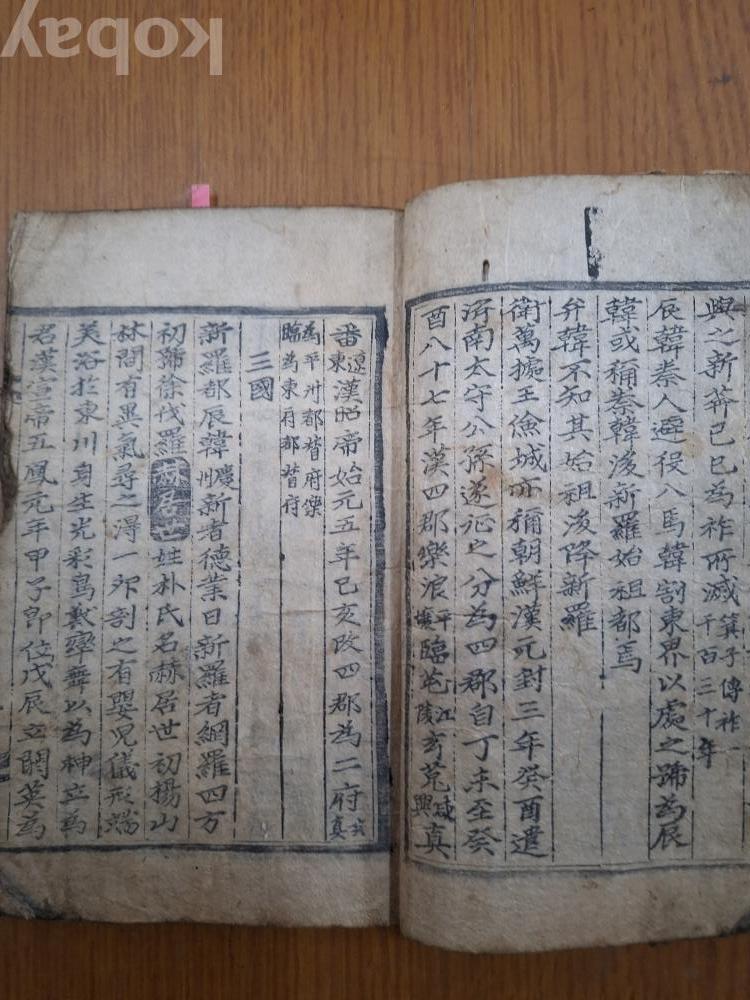 kobay
與之新莽己巳為祚所滅箕子傳祚一千百三十年
辰韓秦人避役入馬韓割東界以處之號為辰
韓或稱秦韓後新羅始祖都焉
弁韓不知其始祖後降新羅
衛萬據王儉城亦稱朝鮮漢元封三年癸酉遣
濟南太守公孫遂心之分為四郡自丁未至癸
酉八十七年漢四郡樂浪平壤臨屯江陵玄菟咸興真
番遼東漢昭帝始元五年己亥改四郡為二府玄真
為平州都督府樂
臨為東府都督府
三國
新羅都辰韓慶州新者德業日新羅者網羅四方
初號徐伐羅赫居世姓朴氏名赫居世初楊山
林間有異氣尋之得一卵剖之有嬰兒儀形端
美浴於東川身生光彩鳥獸率舞以為神立為
君漢宣帝五鳳元年甲子卽位戊辰立閼英為